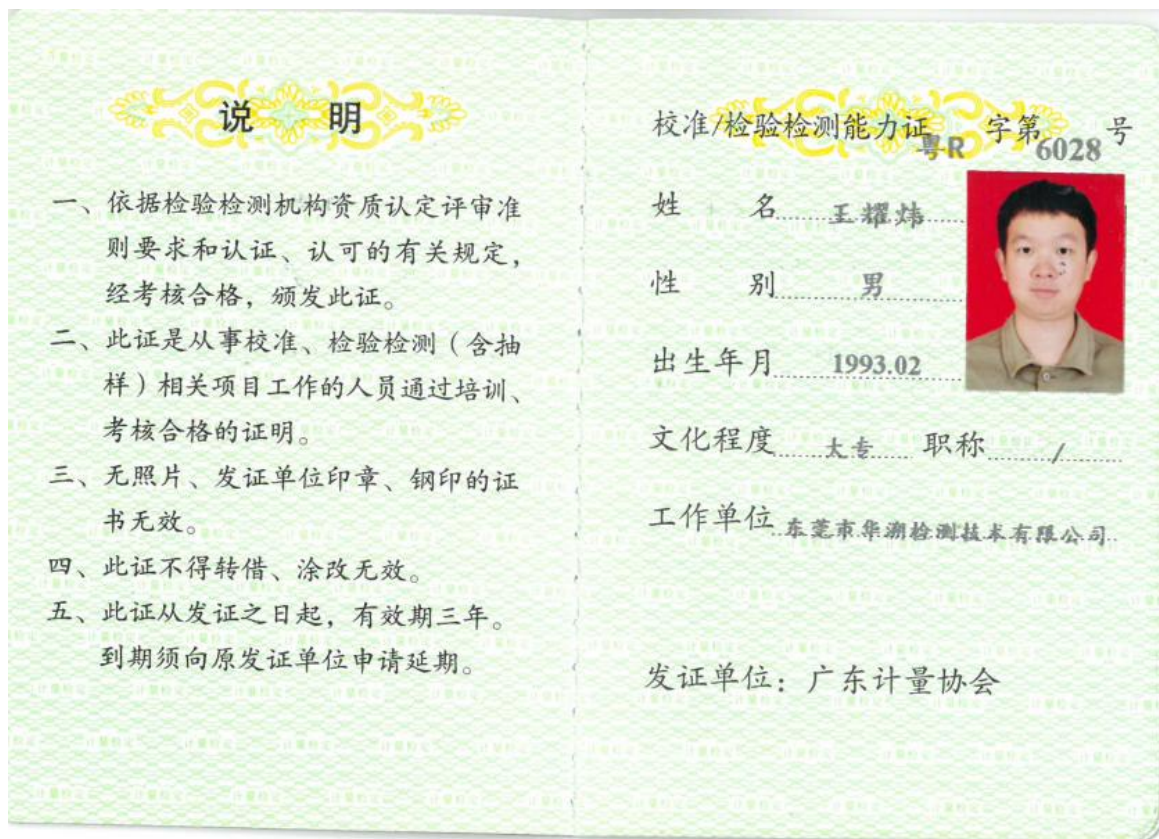 说 明
一、依据检验检测机构资质认定评审准
则要求和认证、认可的有关规定，
经考核合格，颁发此证。
二、此证是从事校准、检验检测（含抽
样）相关项目工作的人员通过培训、
考核合格的证明。
三、无照片、发证单位印章、钢印的证
书无效。
四、此证不得转借、涂改无效。
五、此证从发证之日起，有效期三年。
到期须向原发证单位申请延期。
校准/检验检测能力证 粤R 字第 6028 号
姓 名 王耀炜
性 别 男
出生年月 1993.02
文化程度 大专 职称 /
工作单位 东莞市华溯检测技术有限公司
发证单位：广东计量协会